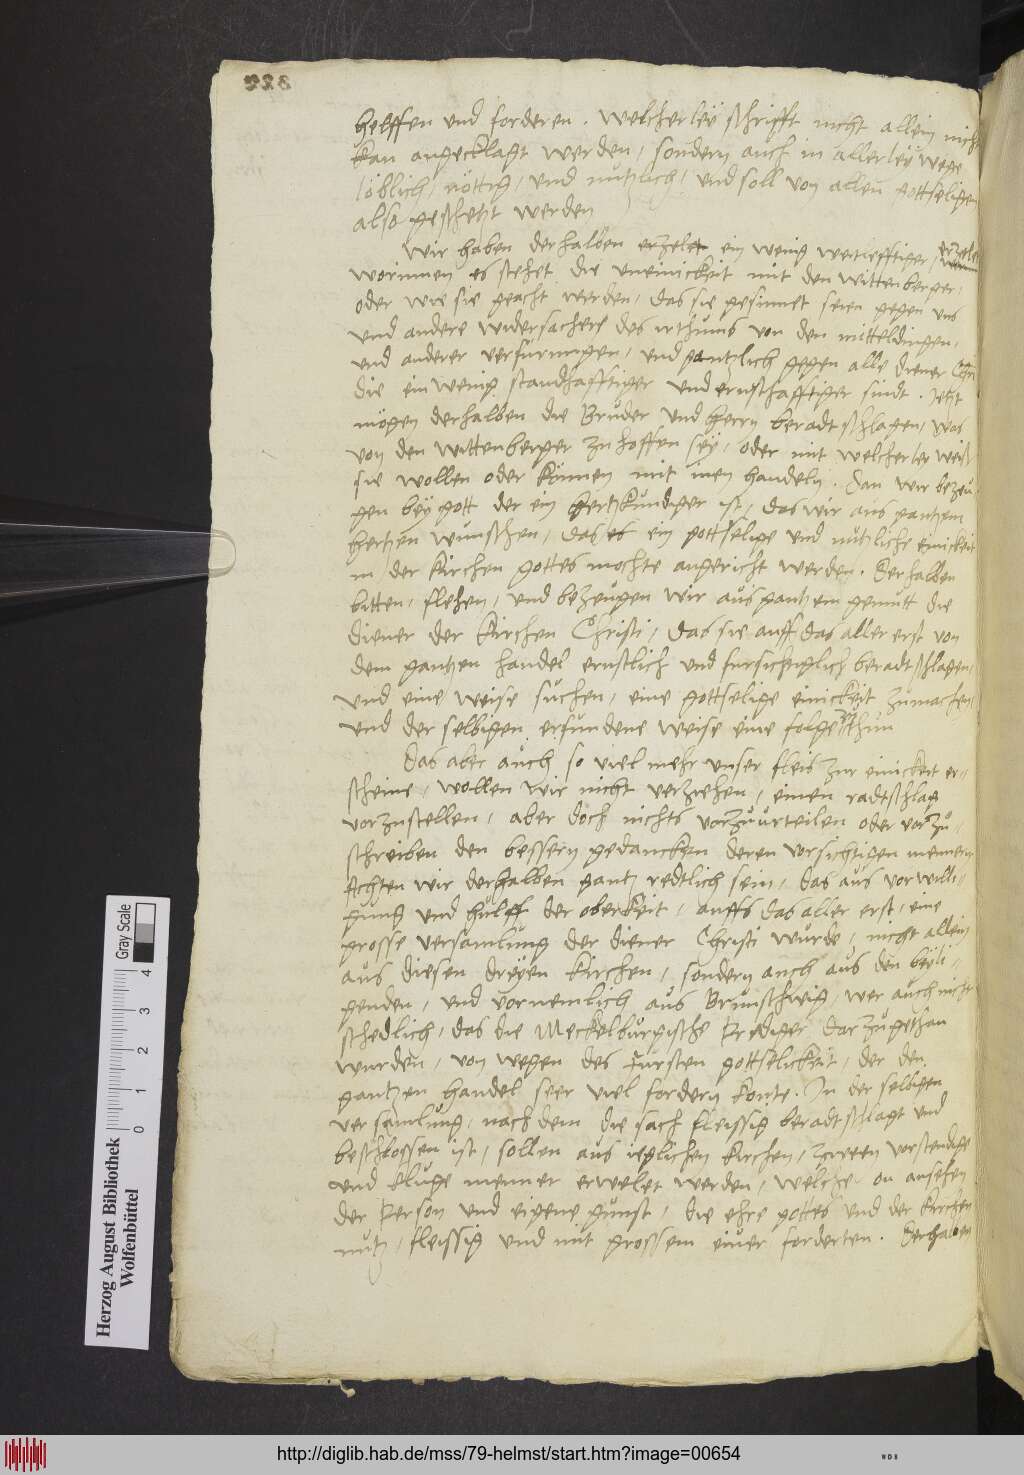 helffen und forderen. Welcherleÿ schrifft nicht allein nicht
kan angecklagt werden, sondern auch in allerleÿ wege
löblich, nöttig, und nutzlich, und soll von allen gottseligen
also geschetzt werden
Wir haben derhalben ein wenig weitlefftiger,
worinnen es stehet die uneinickeit mit den Wittenberger,
oder wie sie geacht werden, das sie gesinnet seien gegen uns
und andere widersachere des irthums von den mitteldingen,
und anderer verfurungen, und gantzlich gegen alle diener Chri
die ein wenig standhafftiger und ernsthafftiger sindt. Jetzt
mögen derhalben die Brüder und Herrn beradtschlagen, was
von den Wittenberger zu hoffen seÿ, oder mit welcherleÿ weise
sie wollen oder können mit inen handeln. Dan wir bezeu-
gen beÿ Gott der ein hertzkundiger ist, das wir aus gantzem
hertzen wunschen, das es ein gottselige und nutzliche einickeit
in der kirchen gottes mochte angericht werden. Derhalben
bitten, flehen, und bezeugen wir aus gantzem gemutt die
diener der kirchen Christi, das sie auff das aller erst von
dem gantzen handel ernstlich und fursichtiglich beradtschlagen,
und eine weise suchen, eine gottselige einickeit zumachen,
und der selbigen erfundene weise eine folge thun
Das aber auch so viel mehr unser fleis zur einickeit er-
scheine, wollen wir nicht verziehen, einen radtschlag
vorzustellen, aber doch nichts vorzuurteilen oder vorzu-
schreiben den bessern gedancken deren vorsichtigen mennern
Achten wir derhalben gantz redtlich sein, das aus vorwilli-
gung und hulff der oberkeit, auffs das aller erst, eine
grosse versamlung der diener Christi wurde, nicht allein
aus diesen dreÿen kirchen, sondern auch aus den beÿli-
genden, und vornemlich aus Brunschwig, wer auch nicht
schedlich, das die Meckelburgische Prediger darzu gethan
wurden, von wegen des Fursten gottselickeit, der den
gantzen handel seer viel fordern konte. In der selbigen
versamlung, nach dem die sach fleissig beradtschlagt und
beschlossen ist, sollen aus ieglichen kirchen, zween vorstendige
und kluge menner erwelet werden, welche on ansehen
der Person und eigene gunst, die ehre gottes und der kirchen
nutz, fleissig und mit grossem eiver forderten. Derhalben
Herzog August Bibliothek
Wolfenbüttel
0 1 2 3 4
Gray Scale
http://diglib.hab.de/mss/79-helmst/start.htm?image=00654